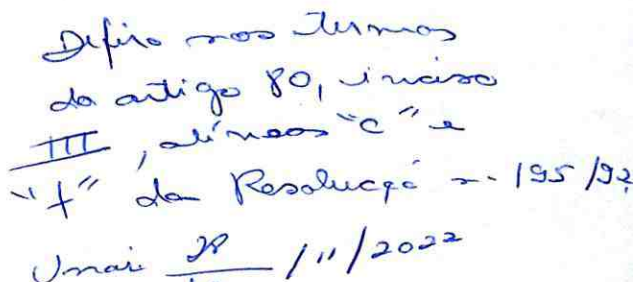 Defiro nos termos
do artigo 80, inciso
III, alíneas "c" e
"f" da Resolução n. 195/92
Unaí 28 /11/2022